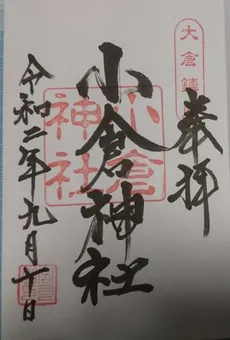 奉拝
大倉鎮
小倉神社
小倉
神社
令和二年九月十日